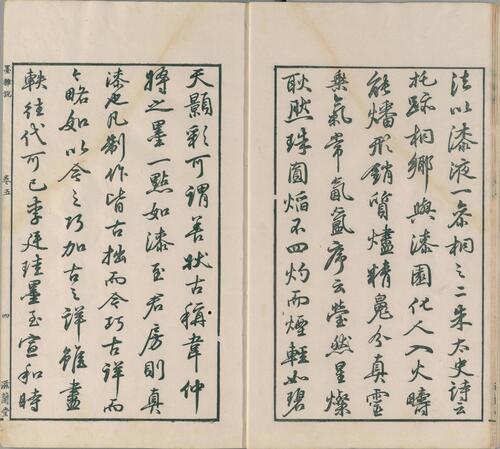 法以漆液一參桐之二朱太史詩云
托蹤桐鄉與漆園化人入火疇
能燔形銷質燼精分真靈
氣常氤氳序云瑩然星燦
耿然珠圓焰不四灼而煙輕如碧
天顥彩可謂善狀古稱韋仲
將之墨一點如漆至君房則真
漆也凡制作皆古拙而今巧古詳而
今略如以今之巧加古之詳雖盡
軼往代可已李廷珪墨至宣和時
墨雜說 卷五 四 滋蘭堂